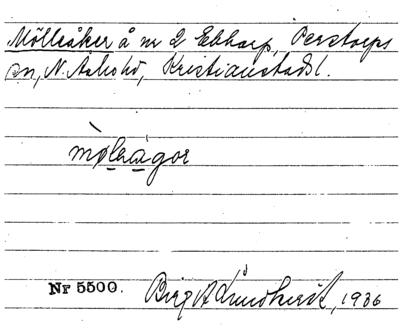 Mölleåker å nr 2 Ebbarp, Perstorps
sn, N. Åsbo hd, Kristianstads l.
mø̀leågor
Nr 5500. Birgit Lundkvist, 1936